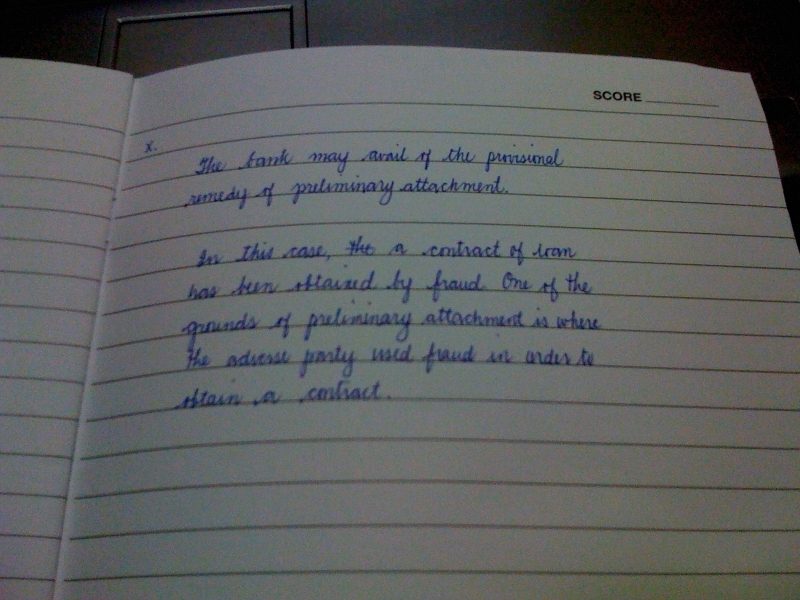 SCORE
x.
The bank may avail of the provisional
remedy of preliminary attachment.
In this case, the a contract of loan
has been obtained by fraud. One of the
grounds of preliminary attachment is where
the adverse party used fraud in order to
obtain a contract.